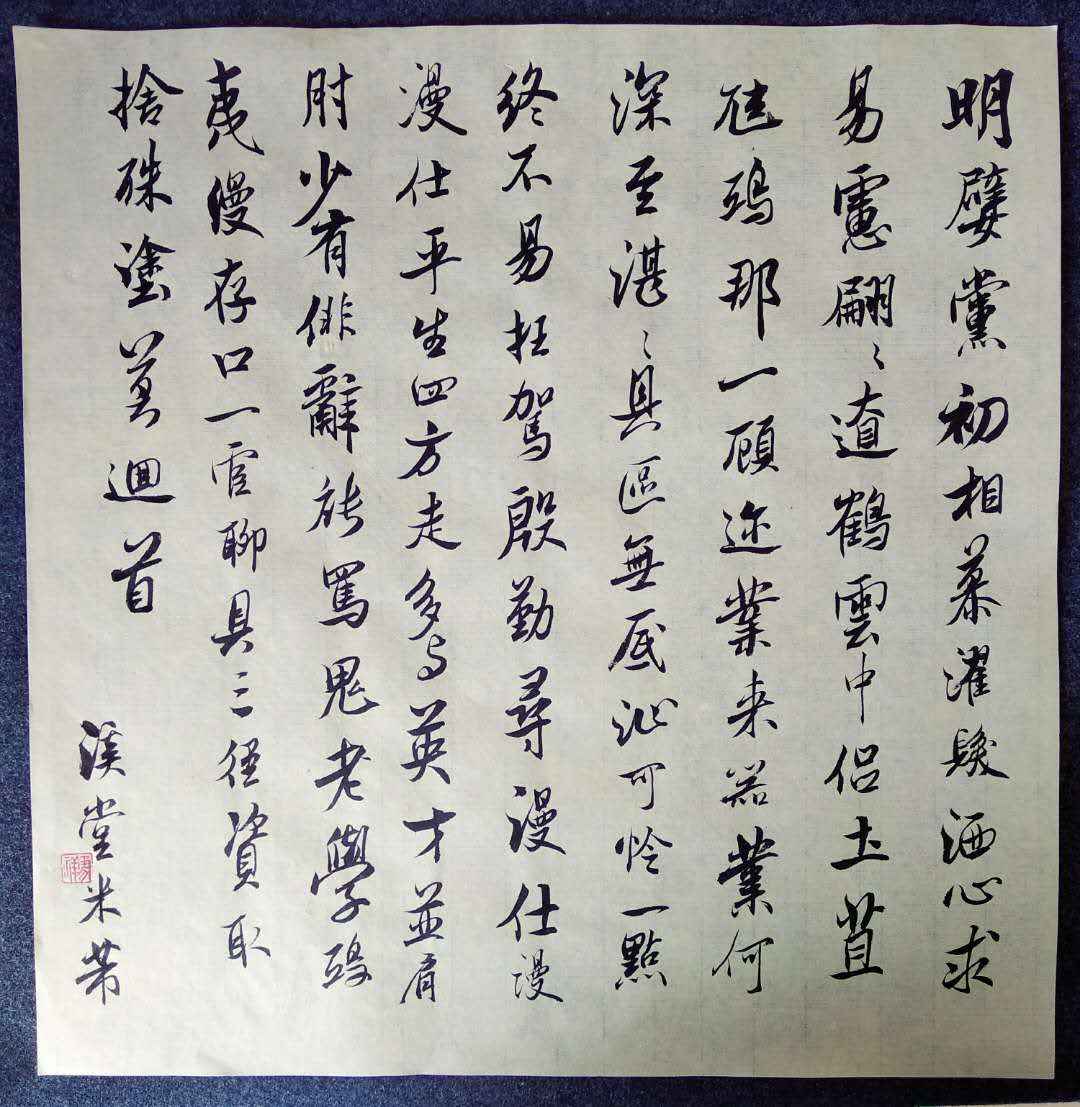 明嬖黨初相慕濯髮洒心求
易慮翩〻遼鶴雲中侣土苴
尫鴟那一顧迩業来器業何
深至湛〻具區無底沚可怜一點
終不易枉駕殷勤尋漫仕漫
漫仕平生四方走多与英才並肩
肘少有俳辭能罵鬼老學鴟
夷縵存口一官聊具三径資取
捨殊塗莫迴首
溪堂米芾